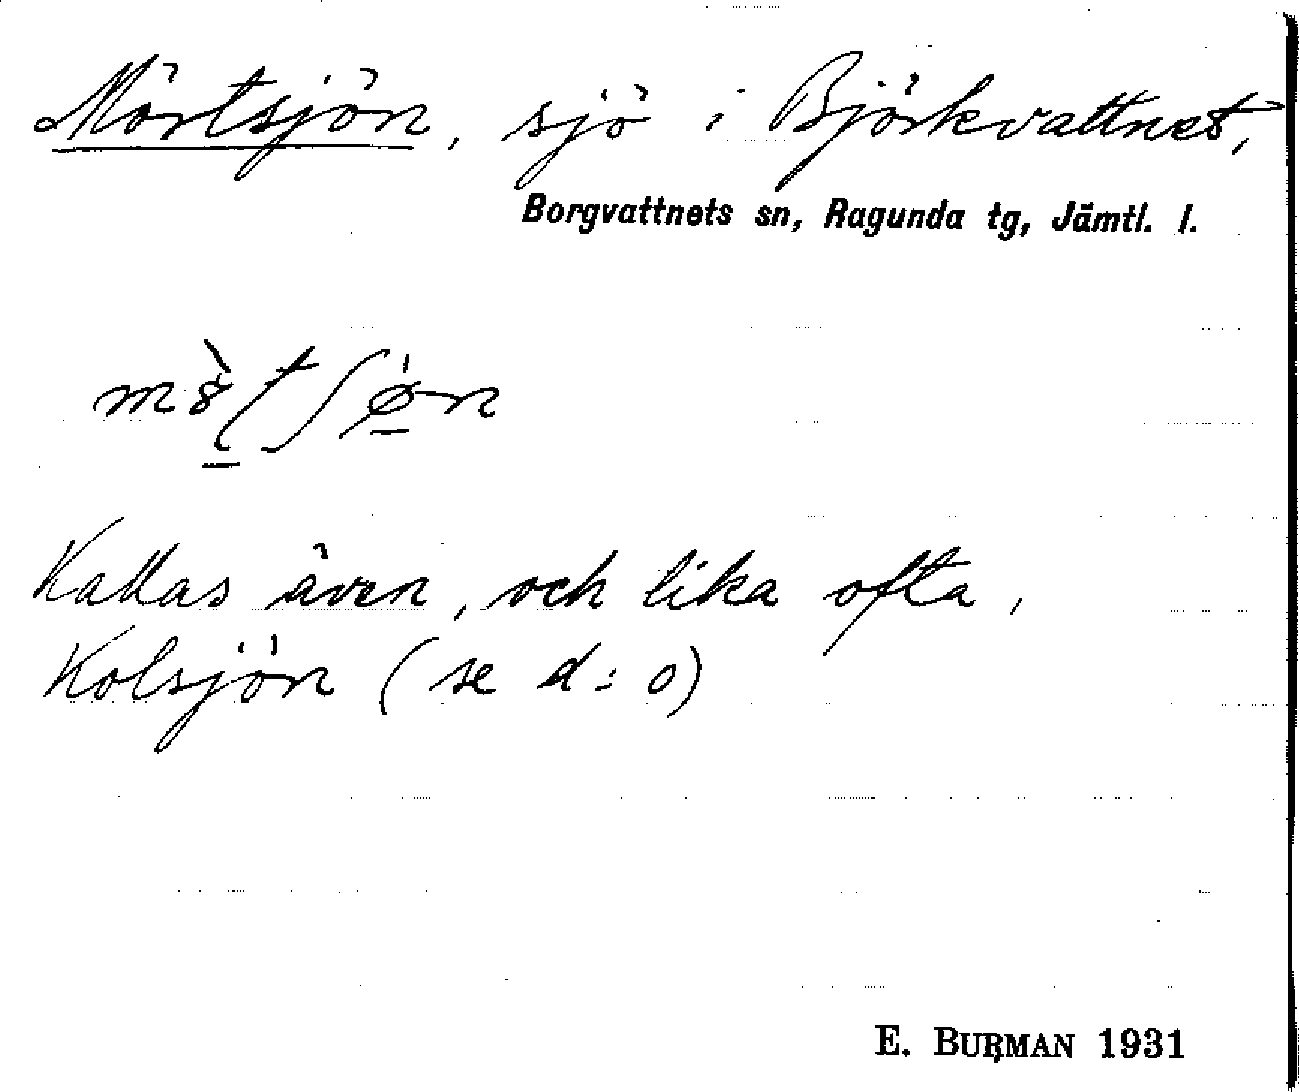 Mörtsjön, sjö i Björkvattnet,
Borgvattnets sn, Ragunda tg, Jämtl. l.
Kallas även, och lika ofta,
Kolsjön (se d:o)
E. BURMAN 1931